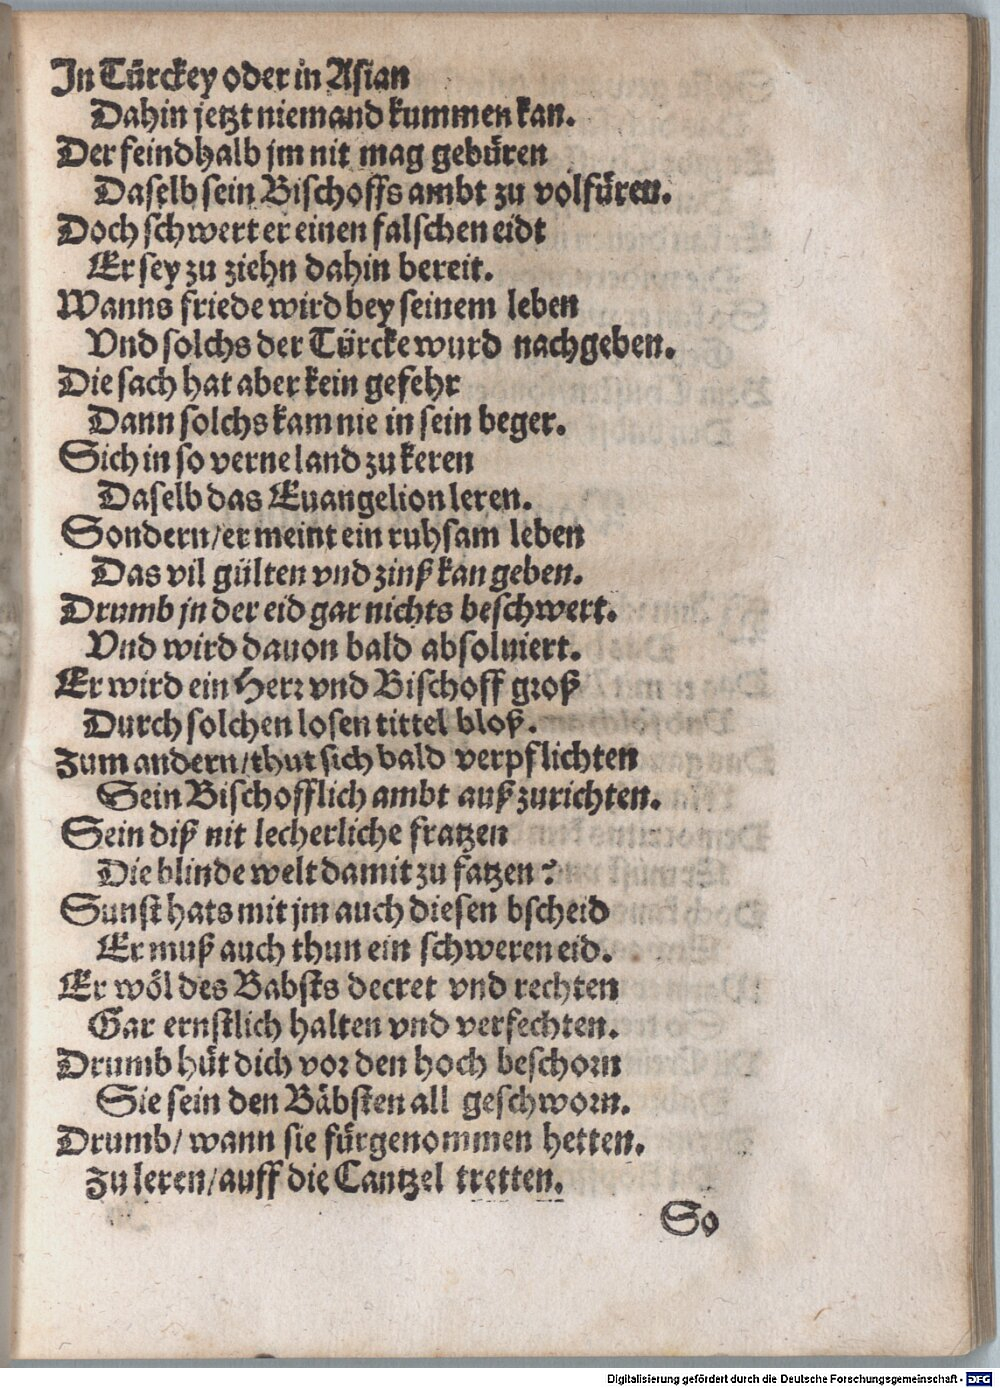 In Türckey oder in Asian
Dahin jetzt niemand kummen kan.
Der feindhalb jm nit mag gebüren
Daselb sein Bischoffs ambt zu volfüren.
Doch schwert er einen falschen eidt
Er sey zu ziehn dahin bereit.
Wanns friede wird bey seinem leben
Vnd solchs der Türcke wurd nachgeben.
Die sach hat aber kein gefehr
Dann solchs kam nie in sein beger.
Sich in so verne land zu keren
Daselb das Euangelion leren.
Sondern/ er meint ein ruhsam leben
Das vil gülten vnd zinß kan geben.
Drumb jn der eid gar nichts beschwert.
Vnd wird dauon bald absoluiert.
Er wird ein Herr vnd Bischoff groß
Durch solchen losen tittel bloß.
Zum andern/ thut sich bald verpflichten
Sein Bischofflich ambt auß zurichten.
Sein diß nit lecherliche fratzen
Die blinde welt damit zu fatzen?
Sunst hats mit jm auch diesen bscheid
Er muß auch thun ein schweren eid.
Er wöl des Babsts decret vnd rechten
Gar ernstlich halten vnd verfechten.
Drumb hüt dich vor den hoch beschorn
Sie sein den Bäbsten all geschworn.
Drumb/ wann sie fürgenommen hetten.
Zu leren/ auff die Cantzel tretten.
So
Digitalisierung gefördert durch die Deutsche Forschungsgemeinschaft - DFG